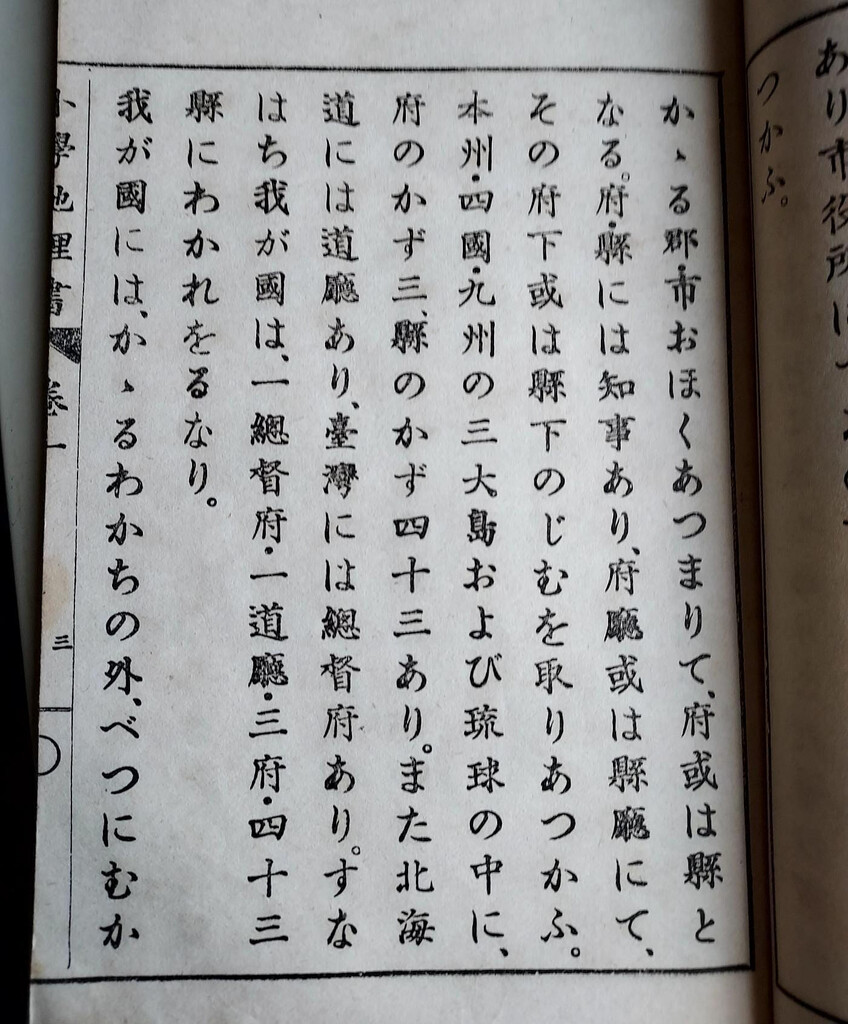 あり市役所に
つかふ。
かゝる郡・市おほくあつまりて、府或は縣と
なる。府・縣には知事あり、府廳或は縣廳にて、
その府下或は縣下のじむを取りあつかふ。
本州・四國・九州の三大島および琉球の中に、
府のかず三、縣のかず四十三あり。また北海
道には道廳あり、臺灣には總督府あり。すな
はち我が國は、一總督府・一道廳・三府・四十三
縣にわかれをるなり。
我が國には、かゝるわかちの外、べつにむか
小學地理書 卷一
三